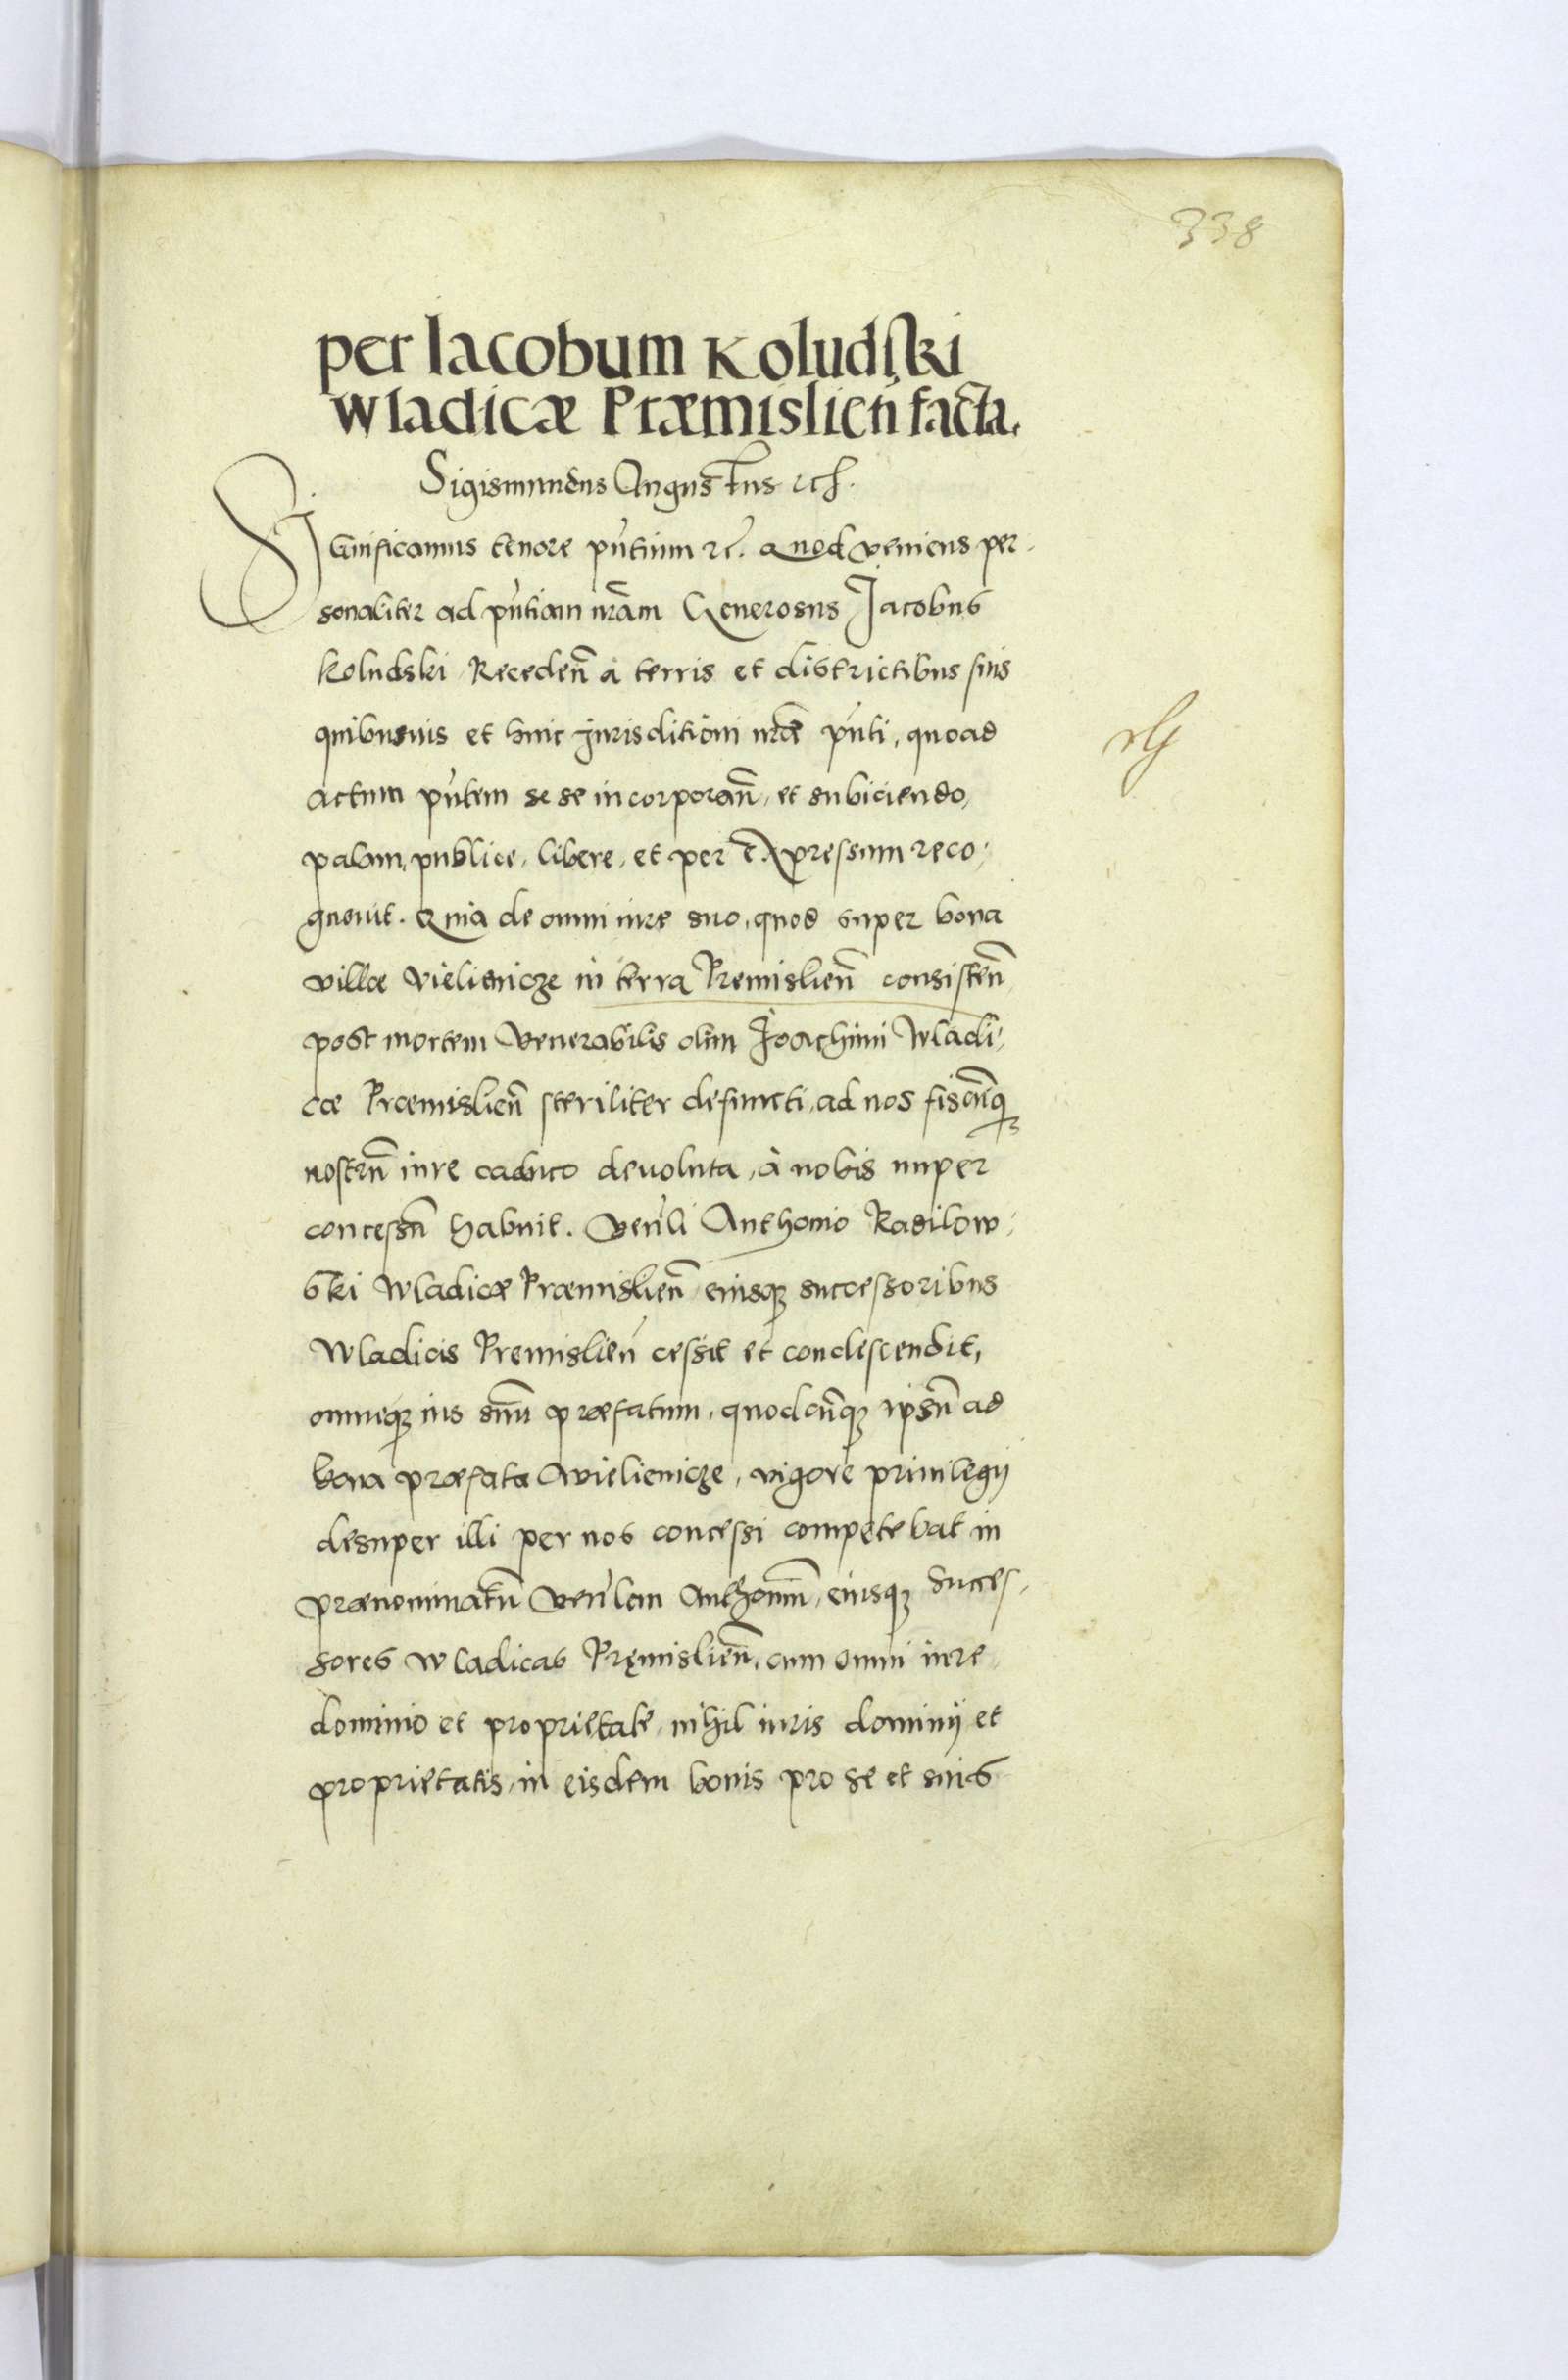 338
per Iacobum Koludski
wladicæ Præmislien̄ facta.
Sigismundus Augustus etc.
Significamus tenore pn̄tium etc. Quod veniens per-
sonaliter ad pn̄tiam nr̄am Generosus Jacobus
Koludski Receden̄ à terris et districtibus suis
quibusuis et huic jurisditioni nr̄æ pn̄ti, quoad
actum pn̄tem se se incorporan̄, et subiciendo,
palam, publice, libere, et per expressum reco-
gnouit. Quia de omni iure suo, quod super bona
villæ Vielienicze in terra Premislien̄ consisten̄
post mortem Venerabilis olim Joachimi Wladi-
cæ Præmislien̄ steriliter defuncti, ad nos fiscūq₃
nostrū iure caduco deuoluta, à nobis nuper
concessū habuit. Ven̄li Anthonio Radilow-
ski Wladicæ Præmislien̄ eiusq₃ successoribus
Wladicis Premislien̄ cessit et condescendit,
omneq₃ ius suū præfatum, quodcūq₃ ipsū ad
bona præfata Wielienicze, vigore priuilegij
desuper illi per nos concessi competebat in
prænominatū Ven̄lem Anthoniū, eiusq₃ succes-
sores Wladicas Pręmislien̄, cum omni iure
dominio et proprietate, nihil iuris dominij et
proprietatis, in eisdem bonis pro se et suis